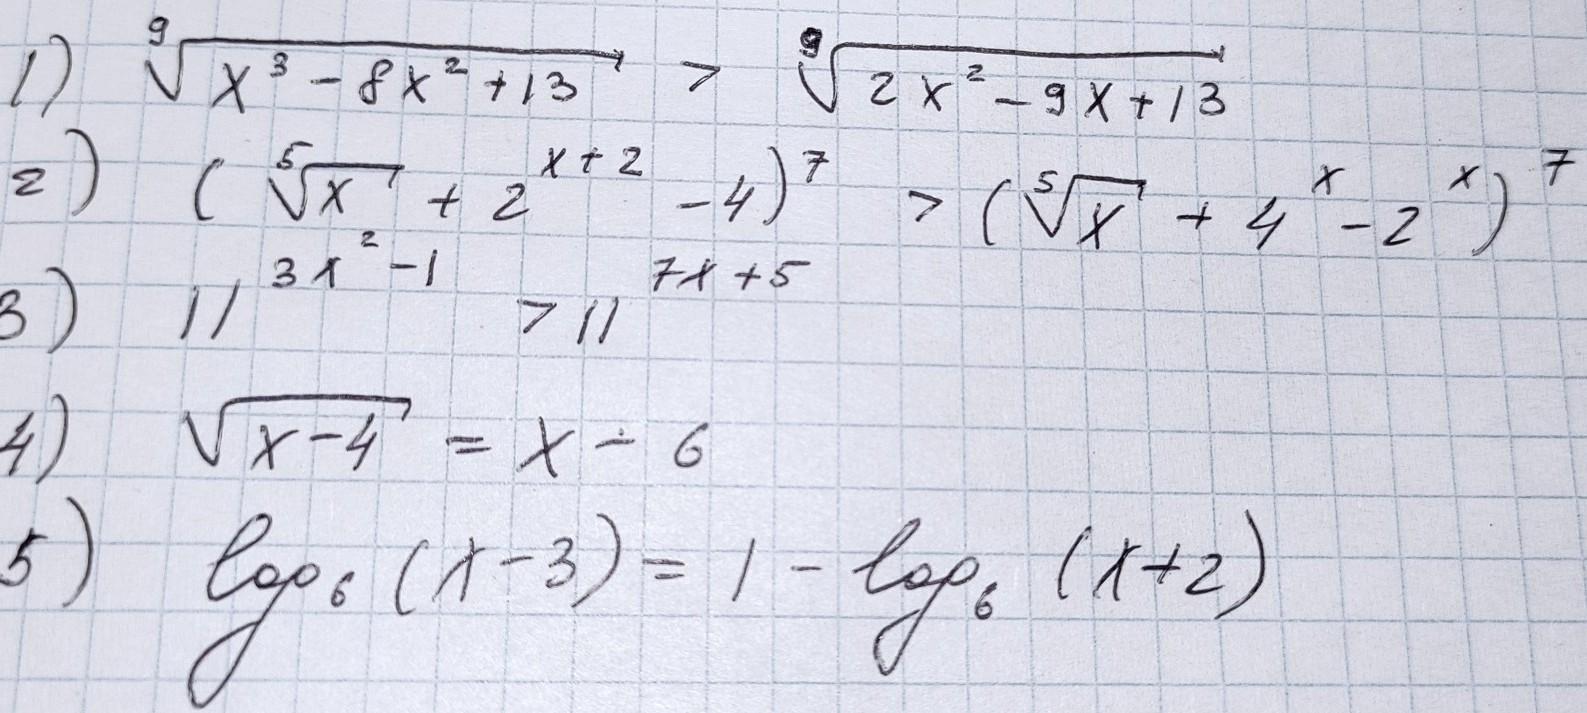 1) ⁹√(x³ - 8x² + 13) > ⁹√(2x² - 9x + 13)
2) (⁵√x + 2^(x+2) - 4)⁷ > (⁵√x + 4^x - 2^x)⁷
3) 11^(3x² - 1) > 11^(7x + 5)
4) √(x - 4) = x - 6
5) log₆ (x - 3) = 1 - log₆ (x + 2)